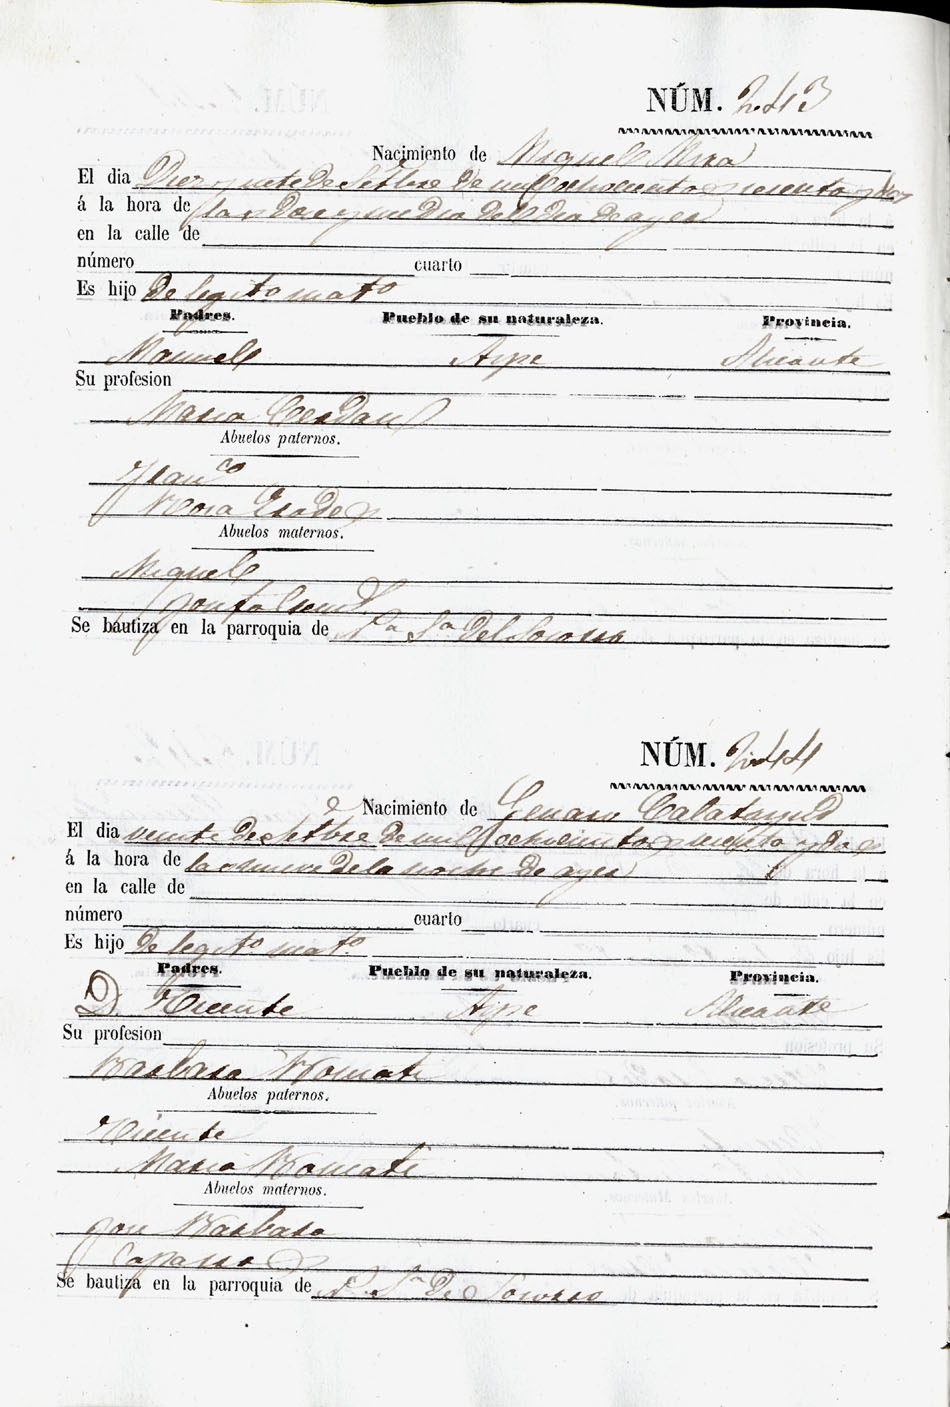 NÚM. 243
Nacimiento de Miguel Mira
El dia Diez y siete de Setbre de mil ochocientos sesenta y dos
á la hora de las doce y media del dia de ayer
en la calle de
número cuarto
Es hijo de legito mato
Padres. Pueblo de su naturaleza. Provincia.
Manuel Aspe Alicante
Su profesion
Maria Cerdan
Abuelos paternos.
Franco
Rosa
Abuelos maternos.
Miguel
Josefa
Se bautiza en la parroquia de Na Sa del Socorro
NÚM. 244
Nacimiento de Genaro Calatayud
El dia veinte de Setbre de mil ochocientos sesenta y dos
á la hora de las nueve de la noche de ayer
en la calle de
número cuarto
Es hijo de legito mato
Padres. Pueblo de su naturaleza. Provincia.
D. Vicente Aspe Alicante
Su profesion
Barbara
Abuelos paternos.
Vicente
Maria
Abuelos maternos.
Barbara
Se bautiza en la parroquia de N. Sa de Socorro